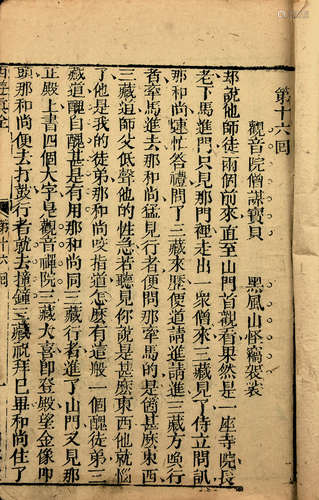 第十六回
觀音院僧謀寶貝　黑風山怪竊袈裟
却說他師徒兩個前來直至山門首觀看果然是一座寺院長
老下馬進門只見那門裡走出一眾僧來三藏見了侍立問訊
那和尚連忙答禮問了三藏來歷便道請進請進三藏方喚行
者牽馬進去那和尚猛見行者便問那牽馬的是甚麼東西
三藏道師父低聲他的性急若聽見你說是甚麼東西他就惱
了他是我的徒弟那和尚咬指道怎麼有這般一個醜徒弟三
藏道醜自醜甚是有用那和尚同三藏行者進了山門又見那
正殿上書四個大字是觀音禪院三藏大喜即登殿望金像叩
頭那和尚便去打鼓行者就去撞鐘三藏祝拜已畢和尚住了
第十六回